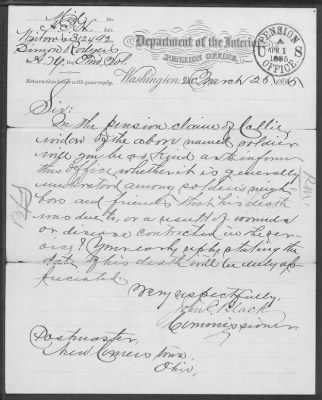 Department of the Interior,
PENSION OFFICE,
Washington, D.C. March 26, 1885
PENSION OFFICE
APR 1
1885
U S
Return this letter with your reply.
Sir:
In the pension claim of Callie
widow of the above named soldier
will you be so kind as to inform
this office whether it is generally
understood among soldier's neigh
bors and friends that his death
was due to, or a result of wounds
or disease contracted in the ser-
vice? Your early reply stating the
date of his death will be duly ap-
preciated
Very respectfully,
John C. Black
Commissioner
Postmaster,
New Comerstown,
Ohio,